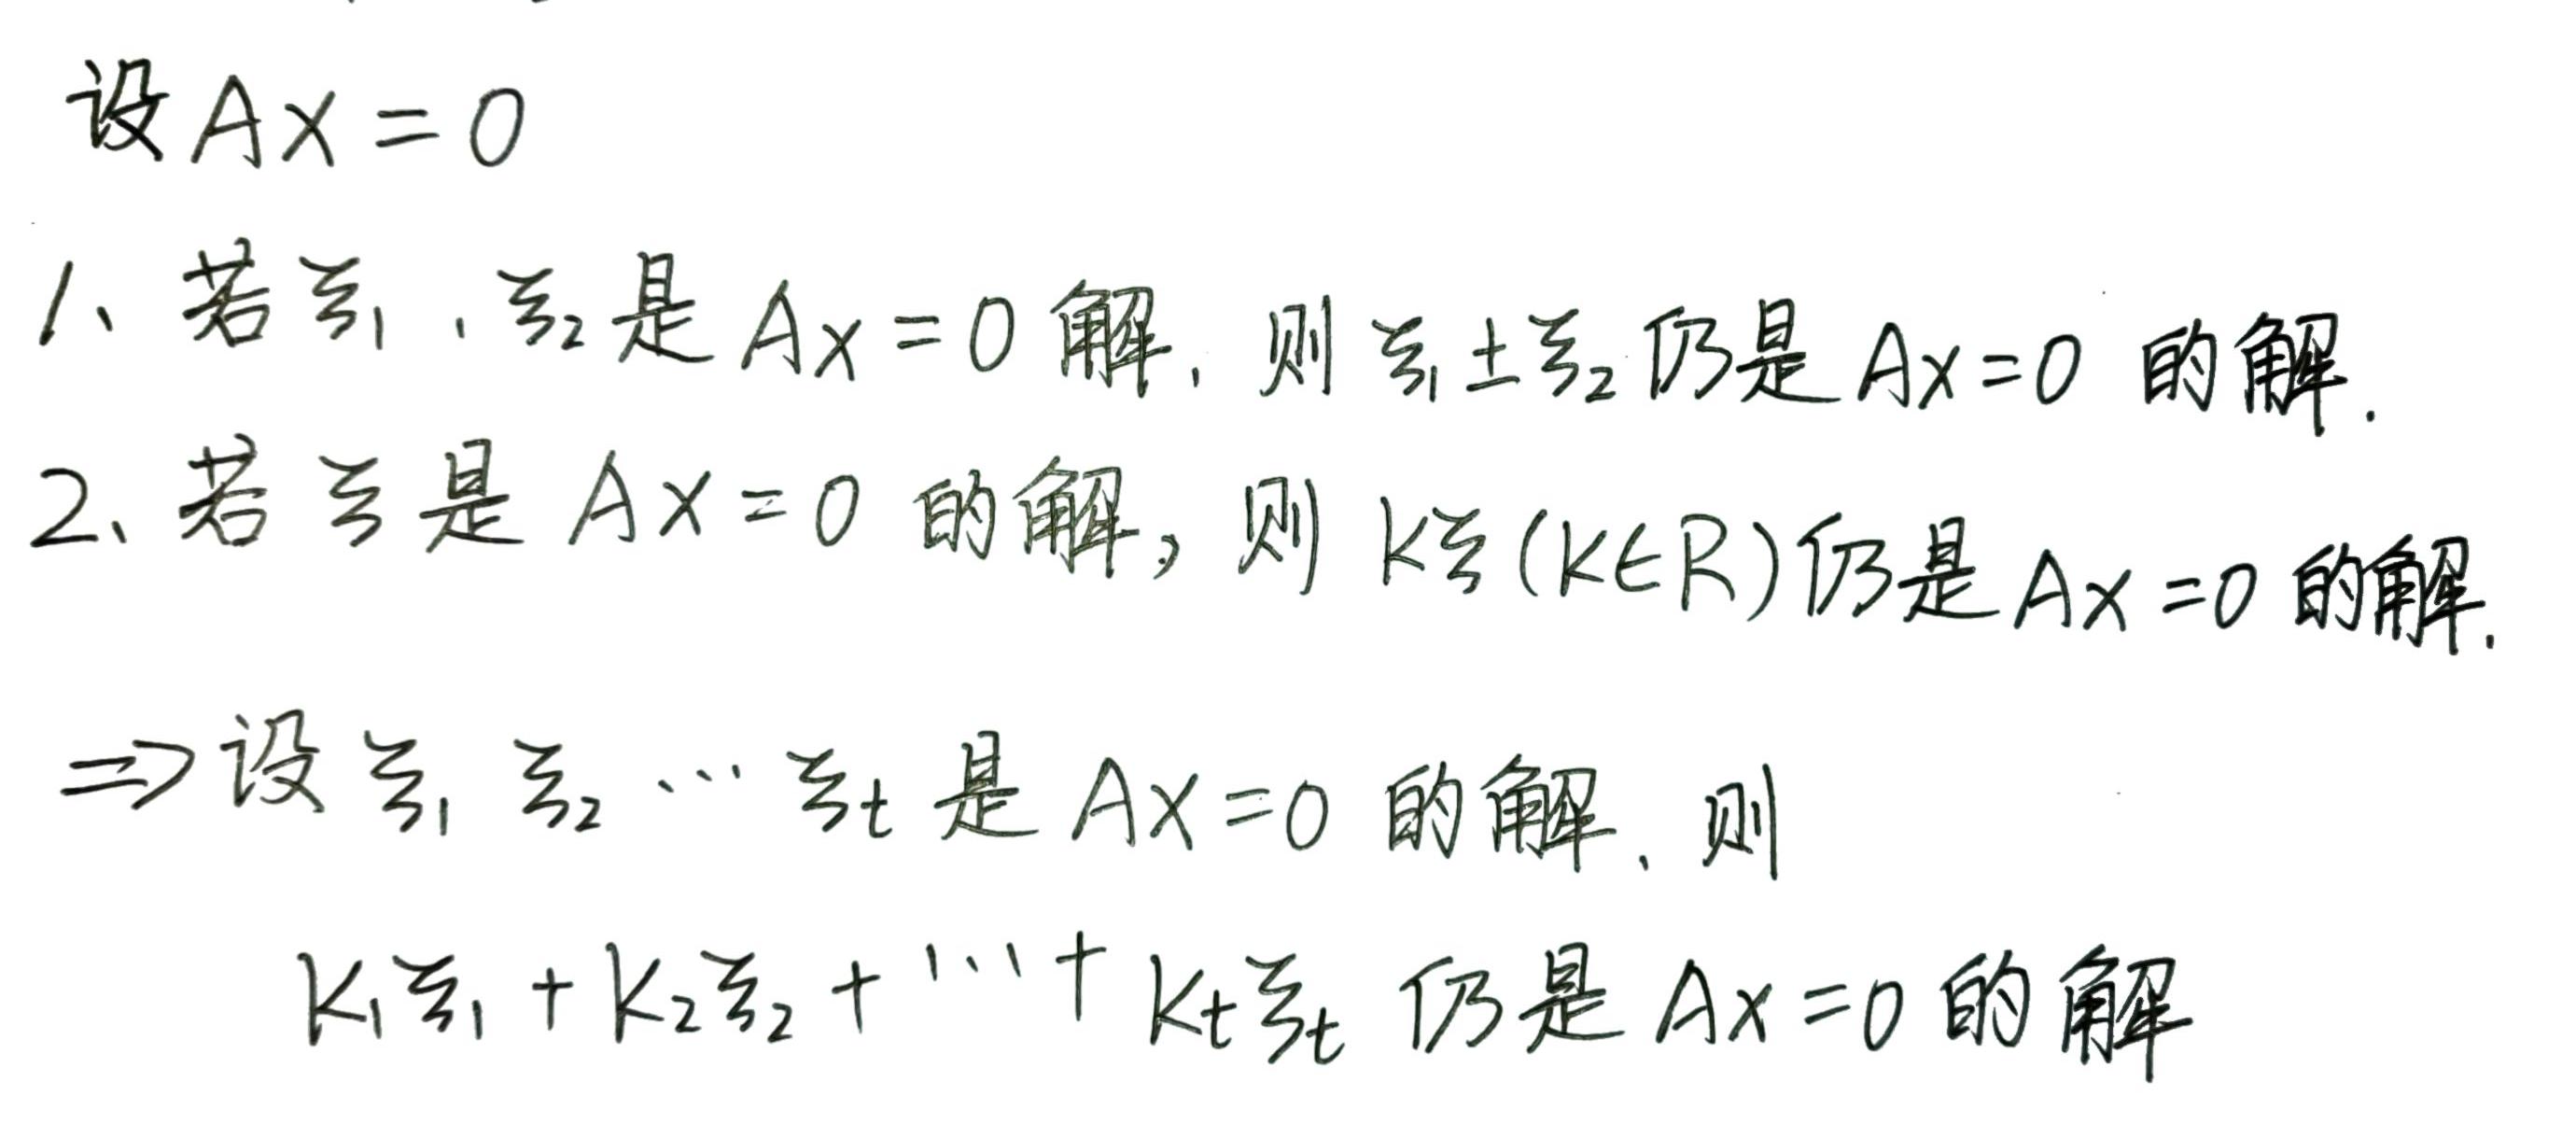 设AX=0
1、若ξ₁,ξ₂是AX=0解,则ξ₁±ξ₂仍是AX=0的解.
2、若ξ是AX=0的解,则Kξ(K∈R)仍是AX=0的解.
⇒设ξ₁ ξ₂ … ξt是AX=0的解、则
K₁ξ₁+K₂ξ₂+…+Ktξt仍是AX=0的解